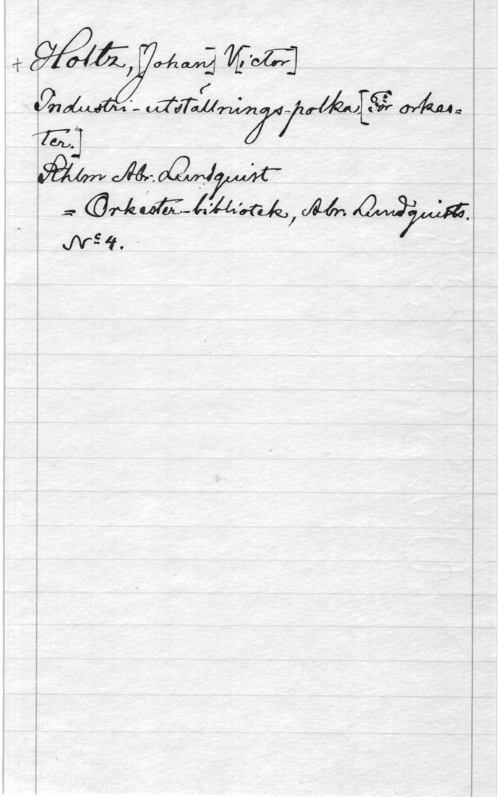 + Holtz, J[ohan] V[ictor]
Industri-utställnings-polka, [för orkes=
ter.]
Sthlm Abr. Lundquist
= Orkester-bibliotek, Abr. Lundquists.
No 4.